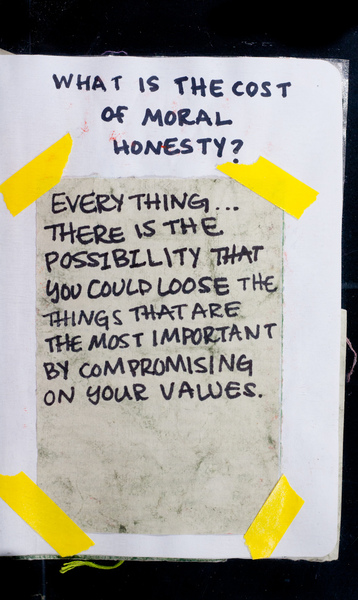 WHAT IS THE COST
OF MORAL
HONESTY?
EVERYTHING...
THERE IS THE
POSSIBILITY THAT
YOU COULD LOOSE THE
THINGS THAT ARE
THE MOST IMPORTANT
BY COMPROMISING
ON YOUR VALUES.